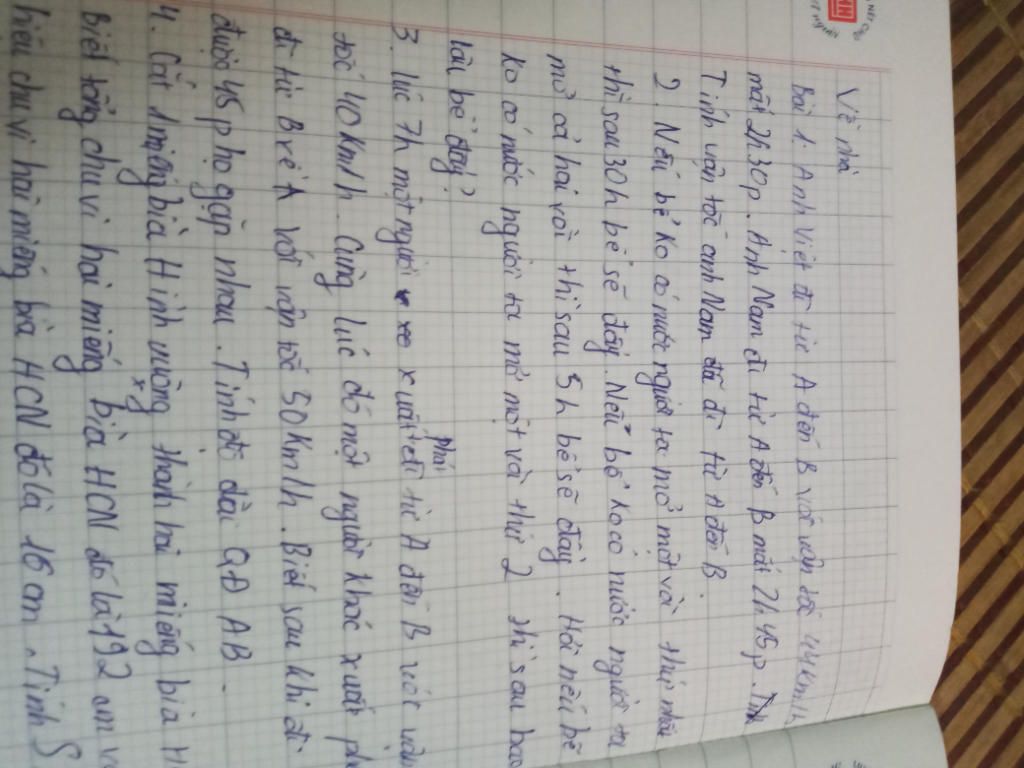 Về nhà
Bài 1. Anh Việt đi từ A đến B với vận tốc 44km/h
mất 2h30p. Anh Nam đi từ A đến B mất 2h45p. Tính
Tính vận tốc anh Nam đã đi từ A đến B.
2. Nếu bể ko có nước người ta mở một vòi thứ nhất
thì sau 30h bể sẽ đầy. Nếu bể ko có nước người ta
mở cả hai vòi thì sau 5h bể sẽ đầy. Hỏi nếu bể
ko có nước người ta mở một vòi thứ 2 thì sau bao
lâu bể đầy?
3. lúc 7h một người xe xuất phát đi từ A đến B với vận
tốc 40km/h. Cùng lúc đó một người khác xuất
đi từ B về A với vận tốc 50km/h. Biết sau khi đi
được 45p họ gặp nhau. Tính độ dài QĐ AB.
4. Cắt 1 miếng bìa Hình vuông thành hai miếng bìa
Biết tổng chu vi hai miếng bìa HCN đó là 192 cm
hiệu chu vi hai miếng bìa HCN đó là 16 cm. Tính S